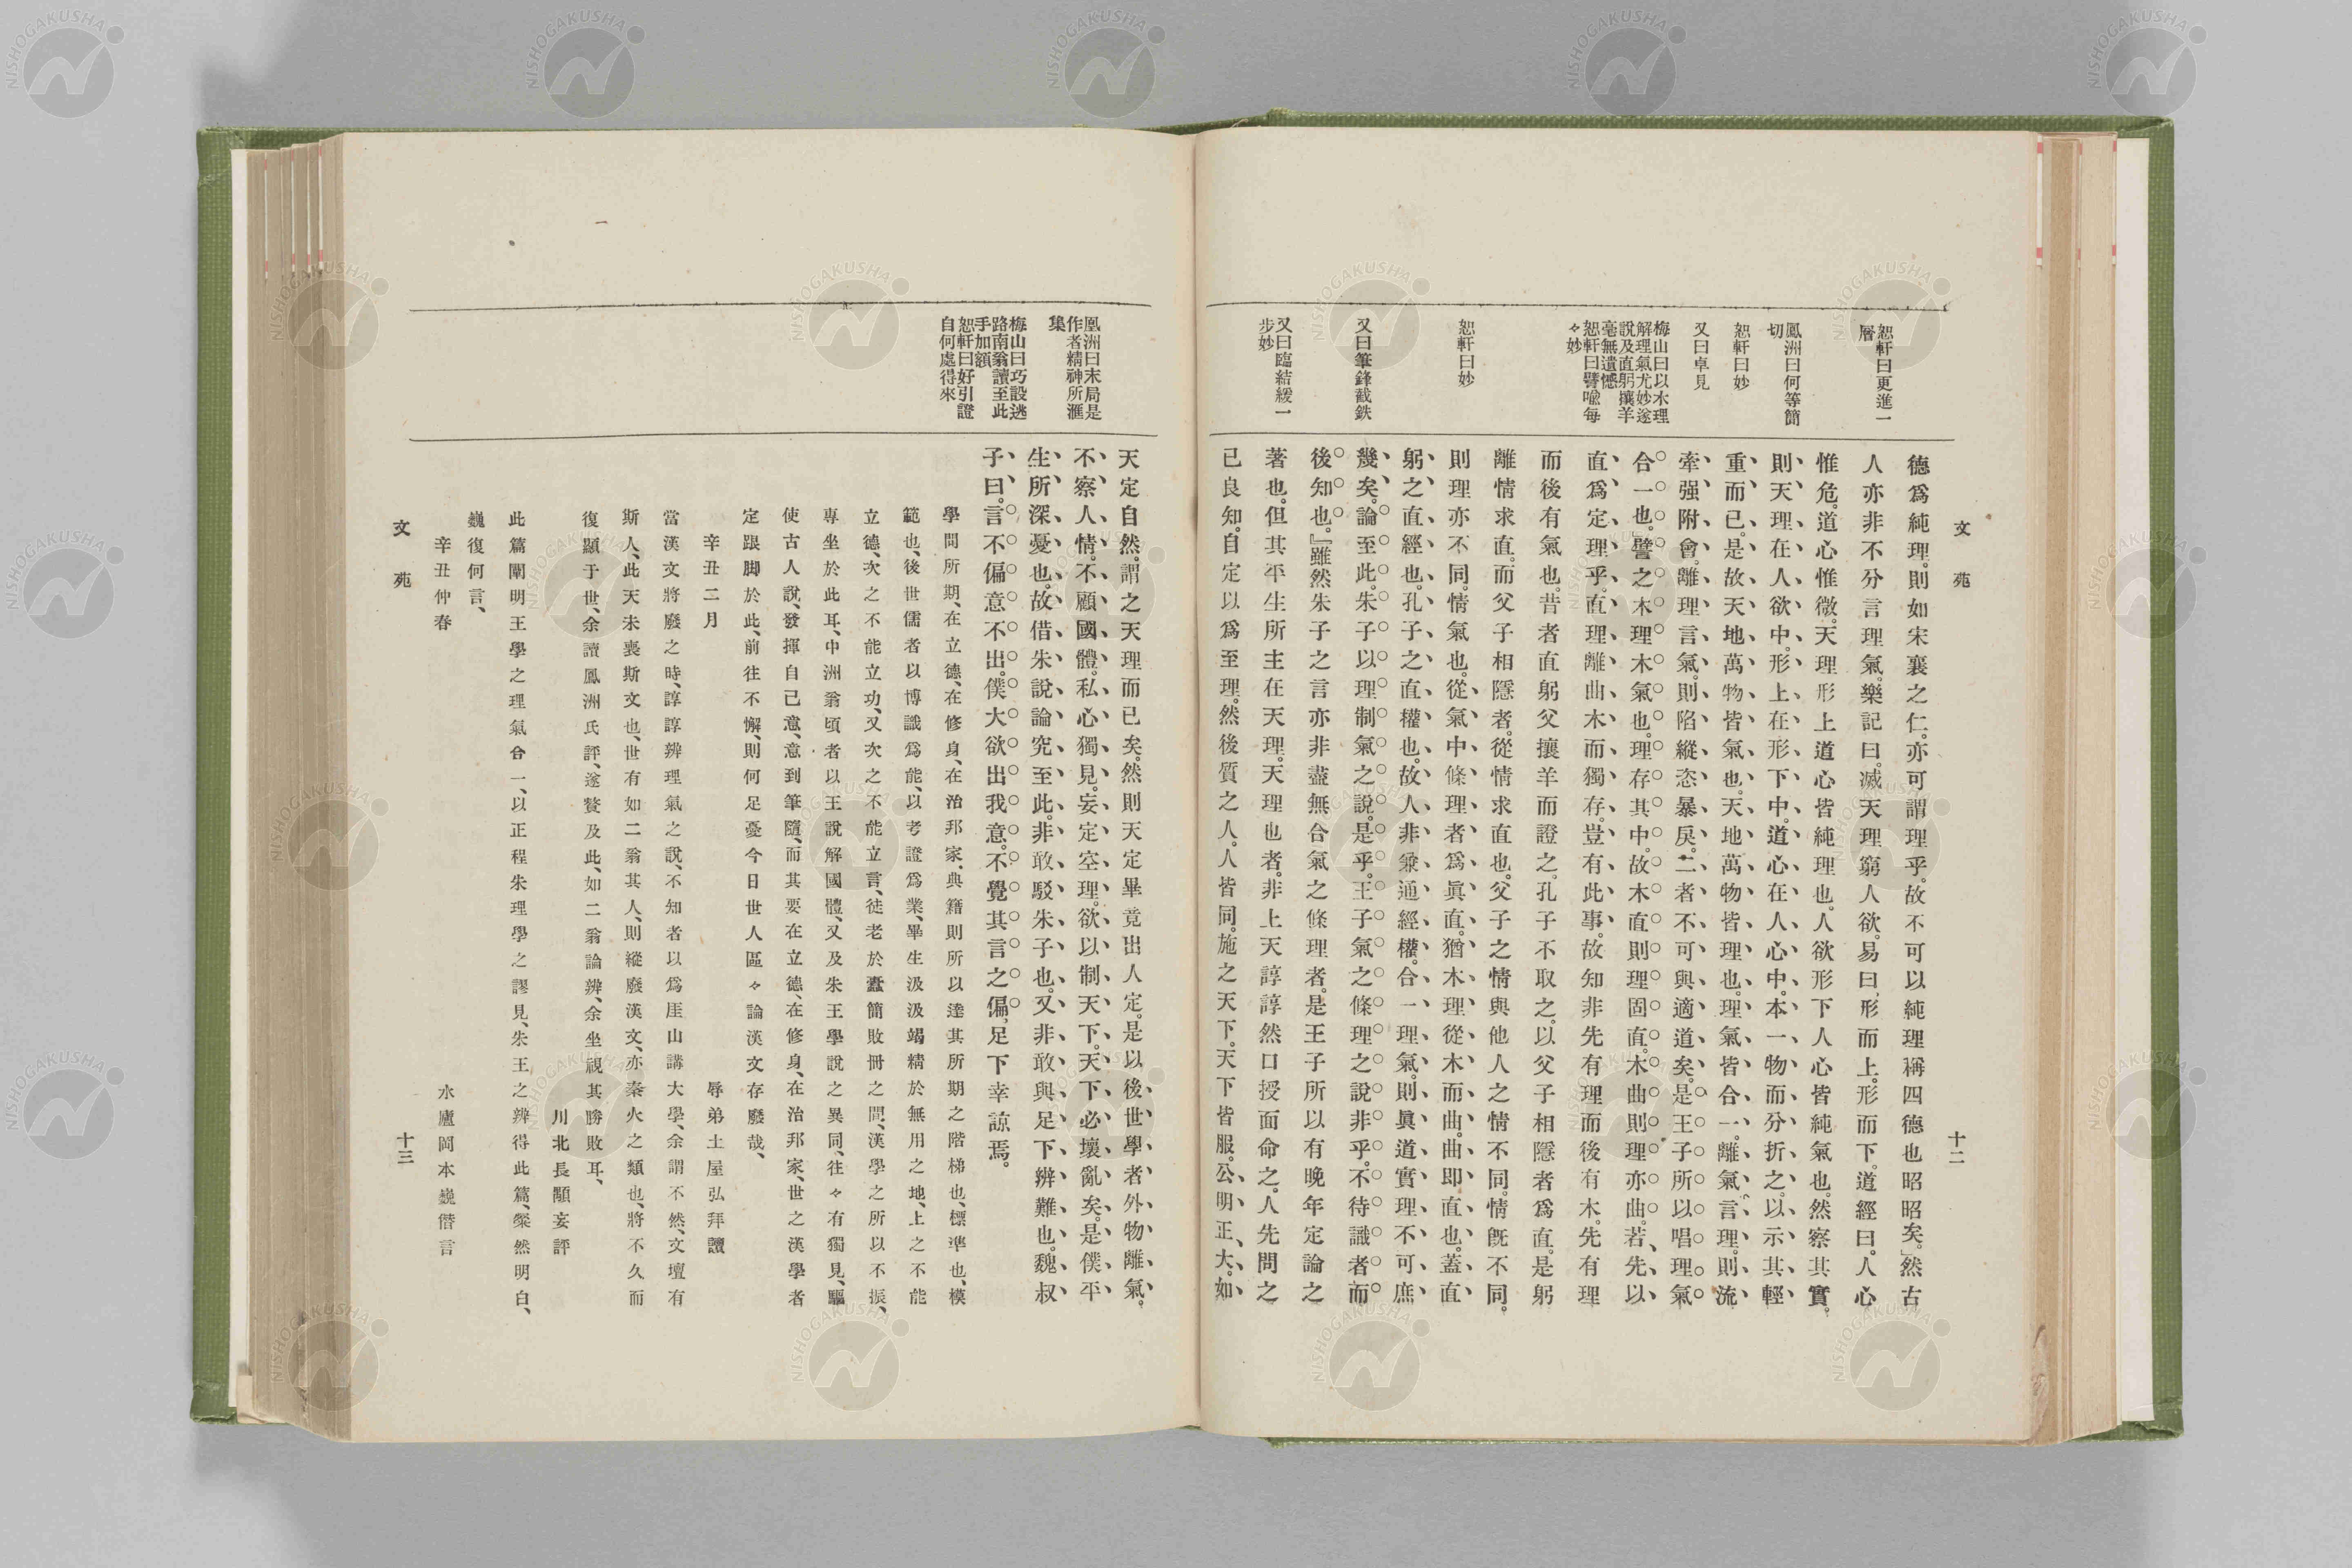 文苑
十二
恕軒曰更進一
層
鳳洲曰何等簡
切
恕軒曰妙
又曰卓見
梅山曰以木理
解理氣尤妙遂
說及直躬攘羊
毫無遺憾
恕軒曰譬喩每
々妙
恕軒曰妙
又曰筆鋒截鉄
又曰臨結緩一
步妙
德爲純理。則如宋襄之仁。亦可謂理乎。故不可以純理稱四德也昭昭矣。」然古
人亦非不分言理氣。樂記曰。滅天理窮人欲。易曰、形而上。形而下。道經曰。人心
惟危。道心惟微。天理形上道心皆純理也。人欲形下人心皆純氣也。然察其實。
則天理在人欲中。形上在形下中。道心在人心中。本一物而分折之。以示其輕
重而已。是故天地萬物皆氣也。天地萬物皆理也。理氣皆合一。離氣言理。則流
牽强附會。離理言氣。則陷縱恣暴戾。二者不可與適道矣。是王子所以唱理氣
合一也。譬之木理木氣也。理存其中。故木直則理固直。木曲則理亦曲。若先以
直爲定理乎。直理離曲木而獨存。豈有此事。故知非先有理而後有木。先有理
而後有氣也。昔者直躬父攘羊而證之。孔子不取之。以父子相隱者爲直。是躬
離情求直。而父子相隱者。從情求直也。父子之情與他人之情不同。情旣不同。
則理亦不同。情氣也。從氣中條理者爲眞直。猶木理從木而曲。曲卽直也。蓋直
躬之直經也。孔子之直權也。故人非兼通經權。合一理氣。則眞道實理不可庶
幾矣。論至此。朱子以理制氣之說。是乎。王子氣之條理之說非乎。不待識者而
後知也。』雖然朱子之言亦非盡無合氣之條理者。是王子所以有晚年定論之
著也。但其平生所主在天理。天理也者。非上天諄諄然口授面命之。人先問之
己良知。自定以爲至理。然後質之人。人皆同。施之天下。天下皆服。公明正大。如
鳳洲曰末局是
作者精神所滙
集
梅山曰巧設逃
路南翁讀至此
手加額
恕軒曰好引證
自何處得來
天定自然。謂之天理而已矣。然則天定畢竟出人定。是以後世學者外物離氣。
不察人情。不顧國體。私心獨見。妄定空理。欲以制天下。天下必壞亂矣。是僕平
生所深憂也。故借朱說論究至此。非敢駁朱子也。又非敢與足下辨難也。魏叔
子曰。言不偏意不出。僕大欲出我意。不覺其言之偏。足下幸諒焉。
學問所期、在立德、在修身、在治邦家、典籍則所以達其所期之階梯也、標準也、模
範也、後世儒者以博識爲能、以考證爲業、畢生汲汲竭精於無用之地、上之不能
立德、次之不能立功、又次之不能立言、徒老於蠧簡敗冊之間、漢學之所以不振、
專坐於此耳、中洲翁頃者以王說解國體、又及朱王學說之異同、往々有獨見、驅
使古人說、發揮自己意、意到筆隨、而其要在立德、在修身、在治邦家、世之漢學者
定跟脚於此、前往不懈、則何足憂今日世人區々論漢文存廢哉、
辛丑二月　辱弟土屋弘拜讀
當漢文將廢之時、諄諄辨理氣之說、不知者以爲厓山講大學、余謂不然、文壇有
斯人、此天未喪斯文也、世有如二翁其人、則縱廢漢文、亦秦火之類也、將不久而
復顯于世、余讀鳳洲氏評、遂贅及此、如二翁論辨、余坐視其勝敗耳、
川北長顒妄評
此篇闡明王學之理氣合一、以正程朱理學之謬見、朱王之辨得此篇、粲然明白、
巍復何言、
辛丑仲春　水廬岡本巍僭言
文苑
十三